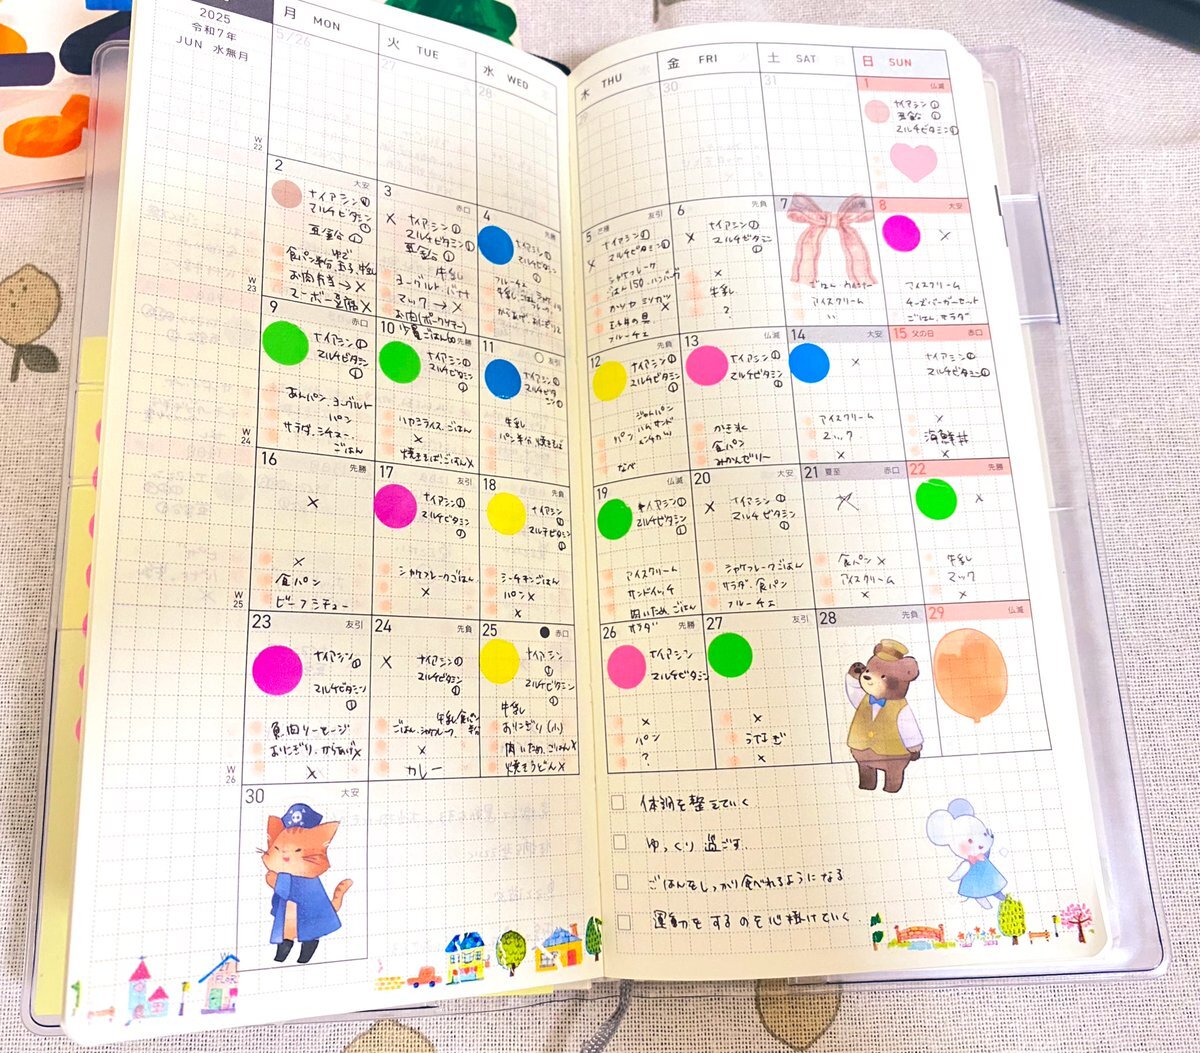 2025
令和7年
JUN 水無月
月 MON
火 TUE
水 WED
木 THU
金 FRI
土 SAT
日 SUN
5/26
27
28
30
31
1 仏滅
ナイアシン①
亜鉛 ①
マルチビタミン①
W
22
2 大安
ナイアシン①
マルチビタミン
亜鉛 ①
お肉弁当→×
マーボー豆腐×
3 赤口
× ナイアシン①
マルチビタミン①
亜鉛①
牛乳
ヨーグルト バナナ
マック→×
4 先勝
ナイアシン①
マルチビタミン
①
フルーチェ
からあげ、おにぎり2
5 芒種 友引
× ナイアシン①
マルチビタミン①
シャケフレーク
ごはん150、ハンバーグ
フルーチェ
6 先負
× ナイアシン①
マルチビタミン
①
×
牛乳
?
7
ごはん ウィンナー
アイスクリーム
8 大安
×
アイスクリーム
チーズバーガーセット
ごはん、サラダ
W
23
9 赤口
ナイアシン①
マルチビタミン
①
あんパン ヨーグルト
パン
サラダ、シチュー
ごはん
10 先勝
ナイアシン①
マルチビタミン
①
ハヤシライス、ごはん
×
焼きそば、ごはん×
11 友引
ナイアシン①
マルチビタ
ミン①
牛乳
パン半分 焼きそば
12 先負
ナイアシン①
マルチビタミン
①
ジャムパン
ハムサンド
パン
なべ
13 仏滅
ナイアシン①
マルチビタミン
①
かき氷
食パン
みかんゼリー
14 大安
×
アイスクリーム
マック
×
15 父の日 赤口
ナイアシン①
マルチビタミン①
×
海鮮丼
W
24
16 先勝
×
×
食パン
ビーフシチュー
17 友引
ナイアシン①
マルチビタミン
①
シャケフレークごはん
×
18 先負
ナイアシン
①
マルチビタミン
①
シーチキンごはん
パン×
×
19 仏滅
ナイアシン①
マルチビタミン
①
アイスクリーム
サンドイッチ
肉いため、ごはん
サラダ
20 大安
× ナイアシン①
マルチビタミン
①
シャケフレークごはん
サラダ、食パン
フルーチェ
21 夏至 赤口
食パン ×
アイスクリーム
×
22 先勝
×
牛乳
マック
×
W
25
23 友引
ナイアシン①
マルチビタミン
①
魚肉ソーセージ
おにぎり、からあげ×
×
24 先負
× ナイアシン①
マルチビタミン
①
牛乳 食パン
ごはん、シャケフレーク
×
カレー
25 赤口
ナイアシン
①
マルチビタミン
①
牛乳
おにぎり(小)
肉いため、ごはん×
焼きうどん×
26 先勝
ナイアシン
マルチビタミン
×
パン
?
27 友引
×
うなぎ
×
28 先負
29 仏滅
W
26
30 大安
体調を整えていく
ゆっくり過ごす
ごはんをしっかり食べれるようになる
運動をするのを心掛けていく